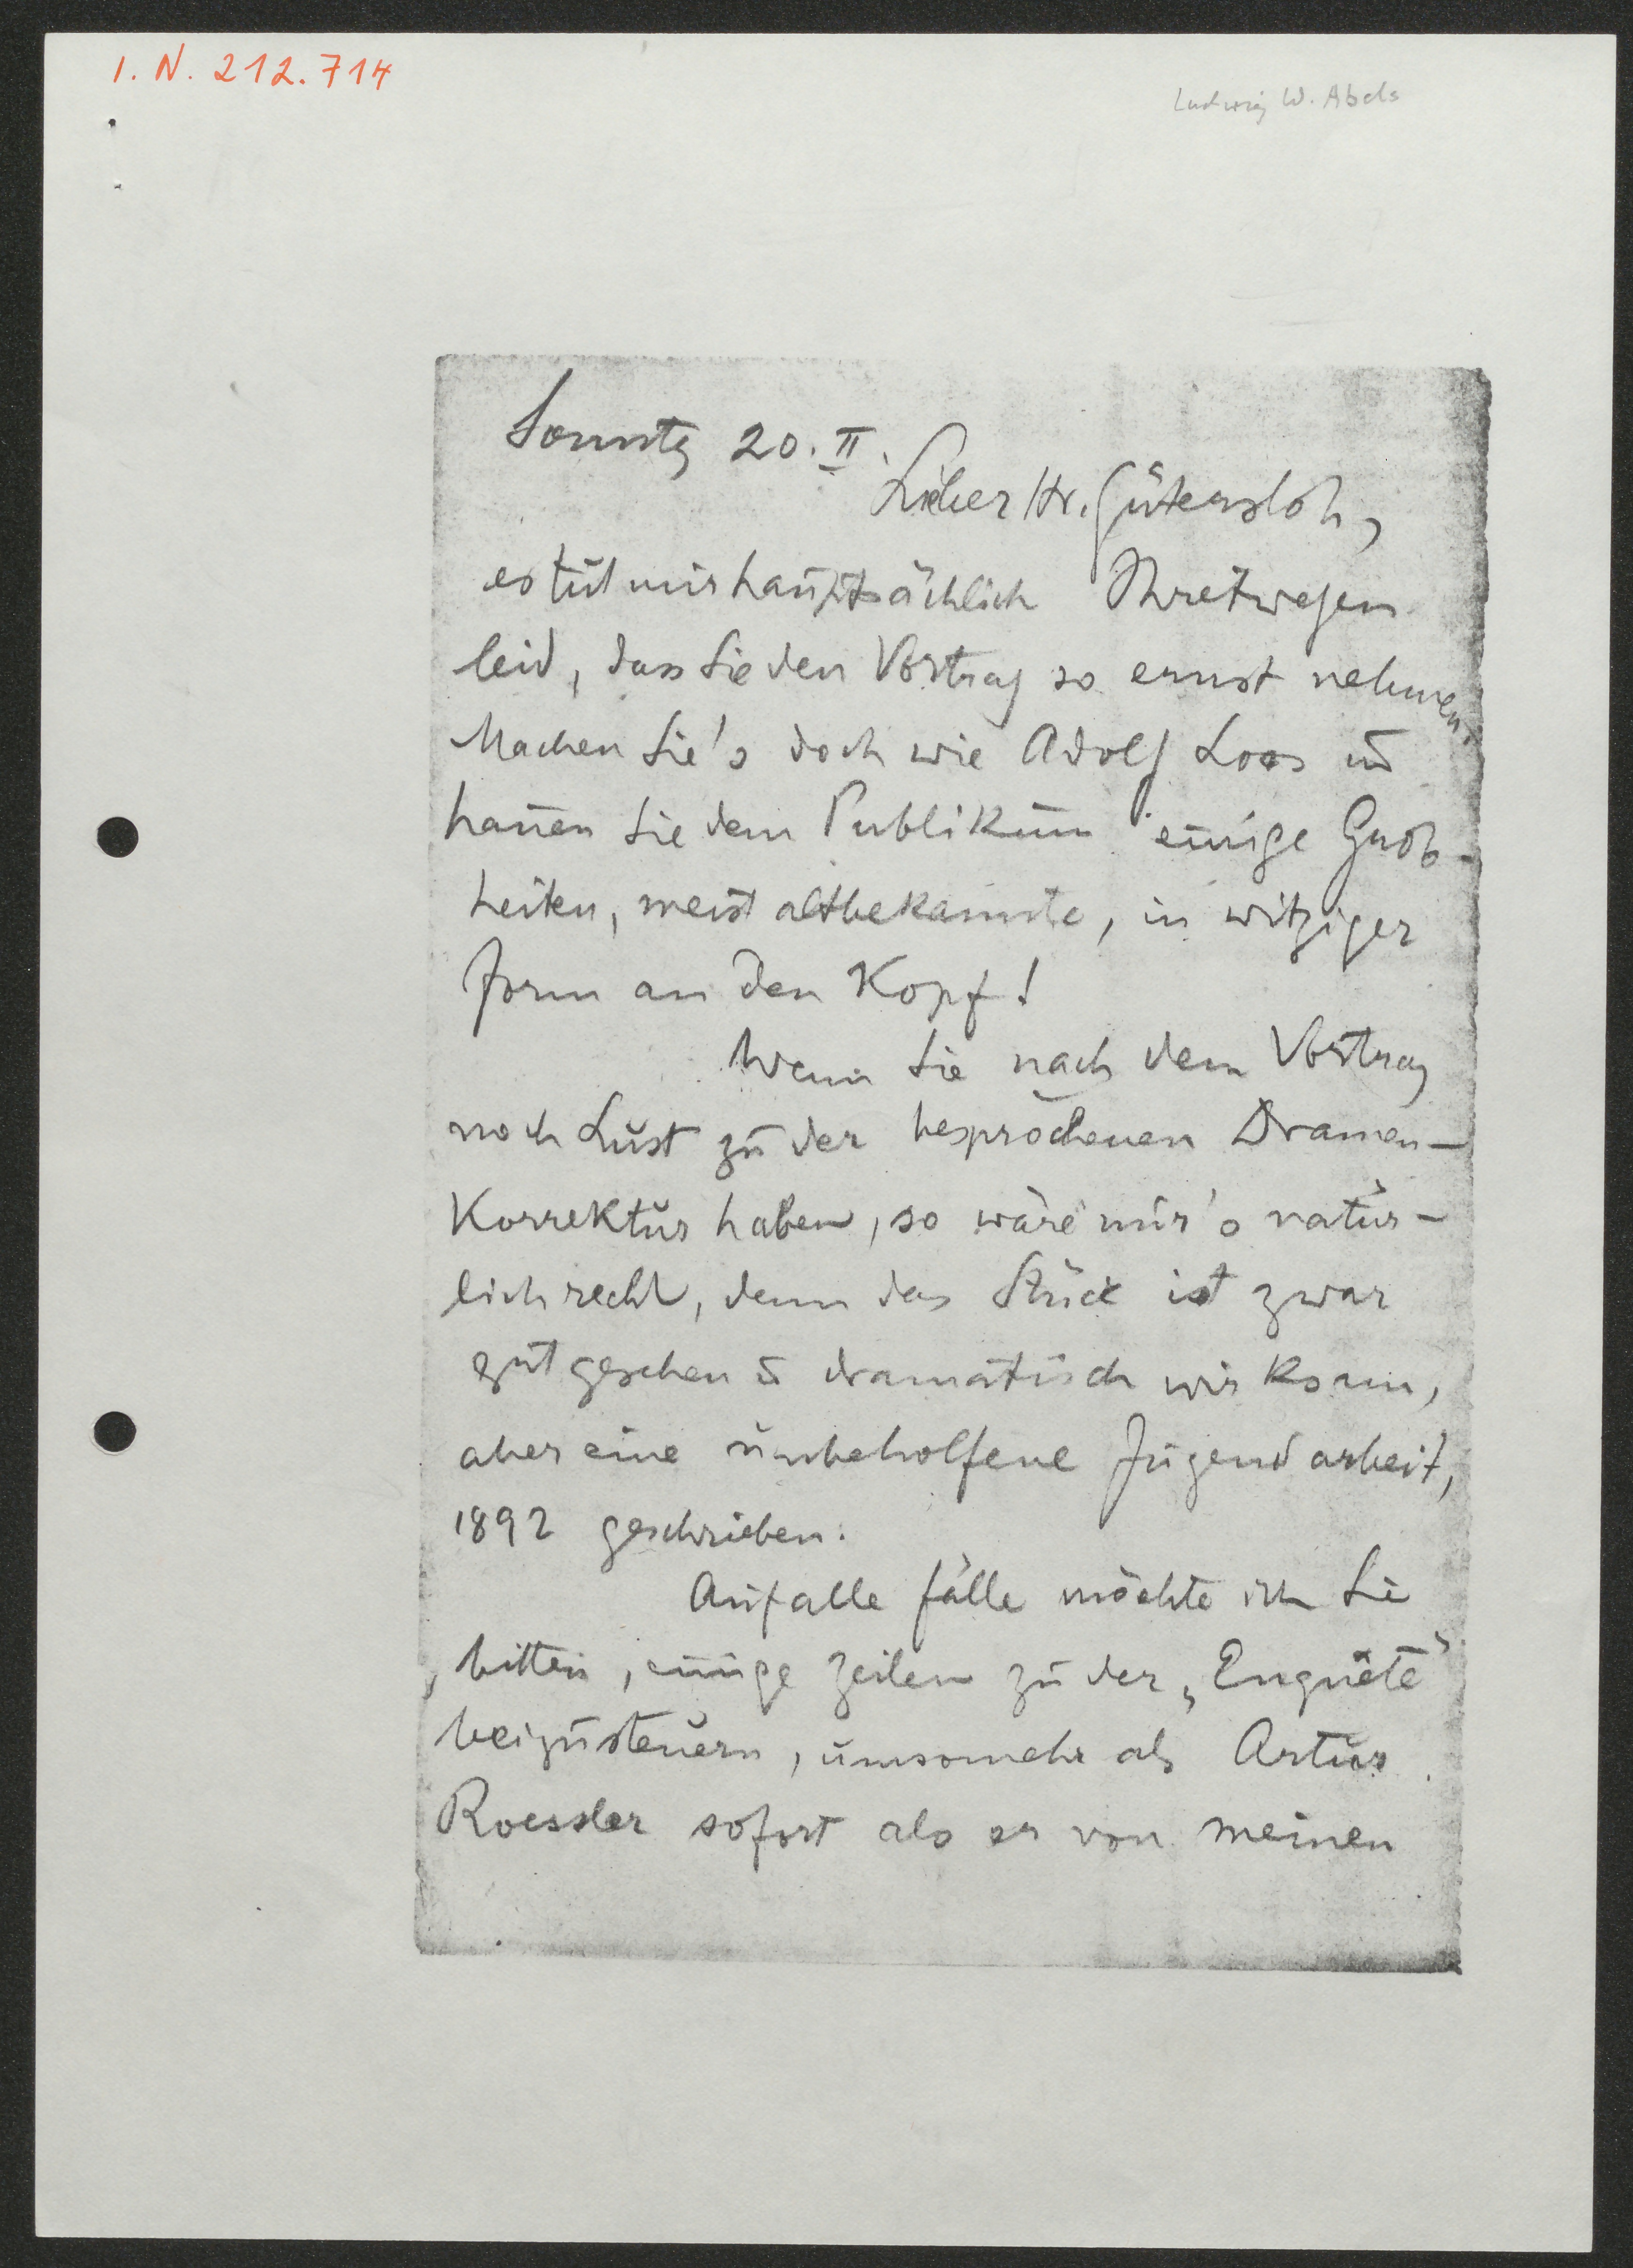 I. N. 212.714
Ludwig W. Abels
Sonntg 20. II.
Lieber Hr. Gütersloh,
es tut mir hauptsächlich Ihretwegen
leid, dass Sie den Vortrag so ernst nehmen,
Machen Sie's doch wie Adolf Loos ud
hauen Sie dem Publikum einige Grob-
heiten, meist altbekannte, in witziger
Form an den Kopf!
Wenn Sie nach dem Vortrag
noch Lust zu der besprochenen Dramen-
Korrektur haben, so wäre mir's natür-
lich recht, denn das Stück ist zwar
gut gesehen u dramatisch wirksam,
aber eine unbeholfene Jugendarbeit,
1892 geschrieben.
Auf alle Fälle möchte ich Sie
bitten, einige Zeilen zu der „Enquête"
beizusteuern, umsomehr als Artur
Roessler sofort als er von meinen